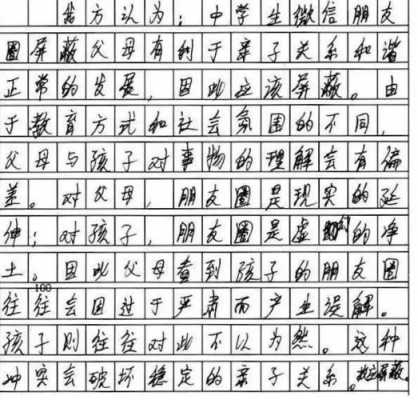 我方认为：中学生微信朋友
圈屏蔽父母有利于亲子关系和谐
正常的发展，因此应该屏蔽。由
于教育方式和社会氛围的不同，
父母与孩子对事物的理解会有偏
差。对父母，朋友圈是现实的延
伸；对孩子，朋友圈是虚拟的净
土。因此父母看到孩子的朋友圈
100
往往会因过于严肃而产生误解。
孩子则往往对此不以为然。这种
冲突会破坏稳定的亲子关系。故应屏蔽。